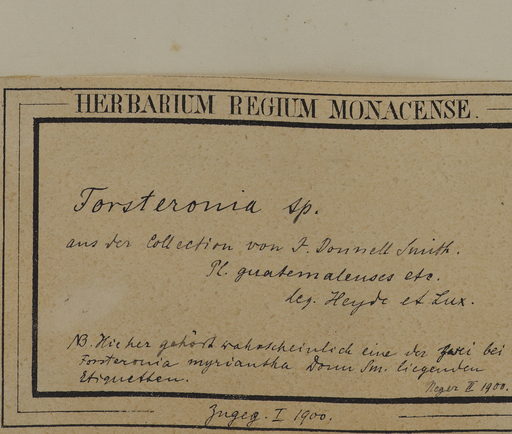 HERBARIUM REGIUM MONACENSE.
Forsteronia sp.
aus der Collection von J. Donnell Smith.
Pl. guatemalenses etc.
leg. Heyde et Lux.
NB. Hieher gehört wahrscheinlich eine der zwei bei
Forsteronia myriantha Donn Sm. liegenden
Etiquetten.
Neger II 1900.
Zugeg. I 1900.